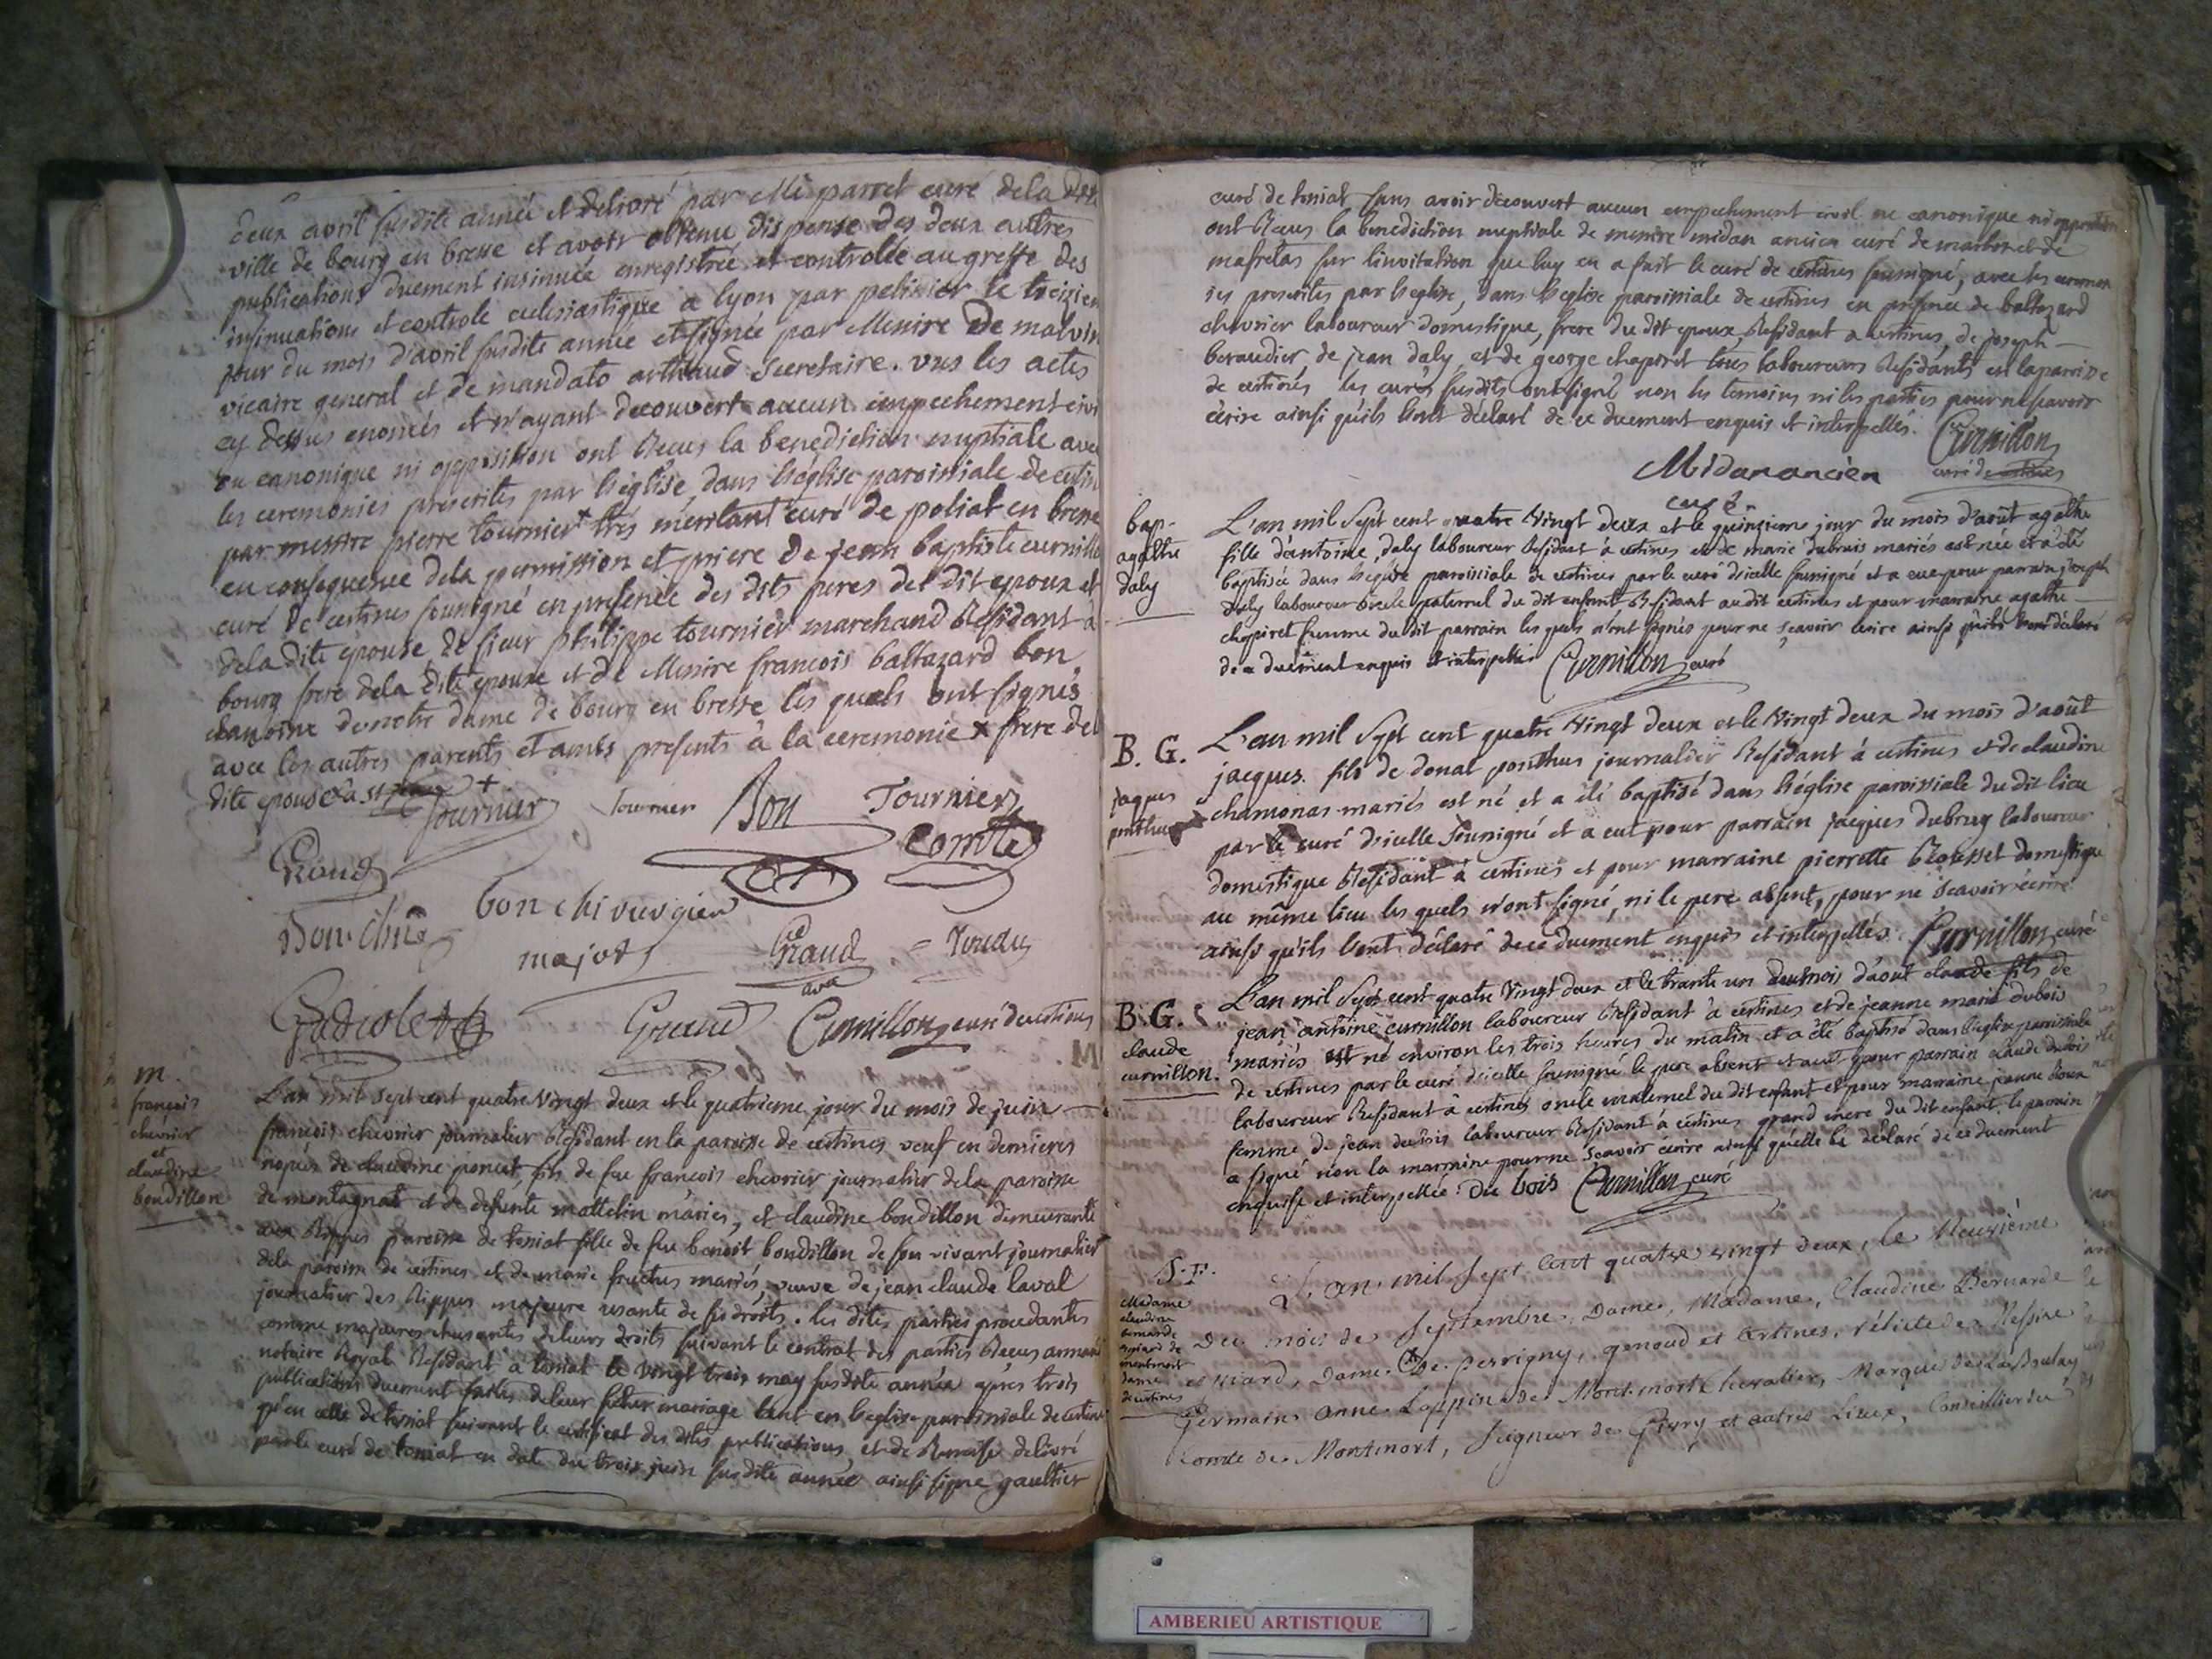 deux avril susdite année et délivré par Mr parret curé de la dite
ville de bourg en bresse et avoir obtenu dispense des deux autres
publications duement insinuée enregistrée et controlée au greffe des
insinuations et controle eclesiastique a lyon par pelissier le treizien
jour du mois d'avril susdite année et signée par Messire De malvin
vicaire general et de mandato arthaud Secretaire. vus les actes
cy dessus enoncés et n'ayant decouvert aucun empechement civi
ou canonique ni opposition ont Recus la benediction nuptiale avec
les ceremonies prescrites par l'église dans l'église paroissiale de certin
par messire pierre tournier très meritant curé de poliat en bresse
en consequence dela permission et priere de jean baptiste curnillo
curé de certines soussigné en presence des dits peres del dit epoux et
dela dite epouse de sieur philippe tournier marchand Residant à
bourg frere dela dite epouse et de Messire francois baltazard bon
chanoine de notre dame de bourg en bresse les quels ont signés
avec les autres parents et amis presents à la ceremonie x frere del
dite epouse
Tournier Tournier Bon Tournier
Comte
bon chirurgien
major
Giraud
Curnillon curé de certines
m.
françois
chevrier
et
claudine
bondillon
L'an mil sept cent quatre vingt deux et le quatrieme jour du mois de juin
françois chevrier journalier Residant en la paroisse de certines veuf en dernieres
nopces de claudine poncet, fils de feu francois chevrier journalier dela paroisse
de montagnat et de defunte mattelin mariés, et claudine bondillon demeurante
aux Rippes paroisse de toniat fille de feu benoit bondillon de son vivant journalier
dela paroisse de certines et de marie fruchus mariés, veuve de jean claude laval
journalier des Rippes majeure usante de ses droits. les dites parties procedantes
comme majeures et usantes deleurs droits suivant le contrat des parties Recus
notaire Royal Residant a toniat le vingt trois may susdite année apres trois
publications duement faites deleur futur mariage tant en l'eglise paroissiale de certines
qu'en celle de toniat suivant le certificat des dites publications et de Remise delivré
par le curé de toniat en date du trois juin susdite année ainsi signé gaultier
curé de toniat sans avoir decouvert aucun empechement civil ne canonique ni opposition
ont Recus la benediction nuptiale de messire midan ancien curé de marboz et de
mafretas sur linvitation que luy en a fait le curé de certines soussigné, avec les ceremon
ies prescrites par l'eglise, dans l'eglise paroissiale de certines en presence de baltazard
chevrier laboureur domestique, frere du dit epoux, Residant a certines, de joseph
beraudier, de jean daly, et de george chapiret tous laboureurs Residants en la paroisse
de certines les curés susdits ont signé non les temoins ni les parties pour ne sçavoir
écrire ainsi qu'ils l'ont déclaré de ce duement enquis et interpellés. Curnillon
Midan ancien curé de certines
curé
bap-
agathe
daly
L'an mil Sept cent quatre Vingt deux et le quinzieme jour du mois d'août agathe
fille d'antoine, daly laboureur Residant à certines et de marie dubruis mariés est née et a été
baptisée dans l'eglise paroissiale de certines par le curé d'icelle soussigné et a eue pour parrain joseph
daly laboureur oncle paternel du dit enfant Residant audit certines et pour marraine agathe
chapiret femme du dit parrain les quels n'ont signés pour ne sçavoir écrire ainsi qu'ils l'ont déclaré
de ce duement enquis et interpellés Curnillon curé
B. G.
jaques
ponthus
L'an mil Sept cent quatre Vingt deux et le Vingt deux du mois d'août
jacques. fils de donat ponthus journalier Residant à certines et de claudine
chamonas mariés est né et a été baptisé dans l'église paroissiale du dit lieu
par le curé d'icelle Soussigné et a eut pour parrain jacques dubruy laboureur
domestique Residant à certines et pour marraine pierrette Rousset domestique
au même lieu les quels n'ont signé, ni le pere absent, pour ne sçavoir écrire
ainsi qu'ils l'ont déclaré dece duement enquis et interpellés. Curnillon curé
B. G.
claude
curnillon.
L'an mil Sept cent quatre Vingt deux et le trante un du mois d'août claude fils de
jean antoine curnillon laboureur Residant à certines et de jeanne marie dubois
mariés est né environ les trois heures du matin et a été baptisé dans l'eglise paroissiale
de certines par le curé d'icelle soussigné le pere absent et a eut pour parrain claude dubois
laboureur Residant à certines oncle maternel du dit enfant et pour marraine jeanne
femme de jean dubois laboureur Residant à certines grand mere du dit enfant. le parrain
a signé non la marraine pour ne sçavoir écrire ainsi qu'elle l'a déclaré de ce duement
enquise et interpellée. Du bois Curnillon curé
S. P.
Madame
claudine
bernarde
de
montmort
dame
de certines
L'an mil Sept Cent quatre vingt deux, le Neuvième
du mois de Septembre, Dame, Madame, Claudine Bernarde
Dame De perrigny, genoud et Certines, rélicte de Messire
Germain Anne Loppin de Mont-mort Chevalier, Marquis de La Boulay
Comte de Montmort, Seigneur de Givry et autres Lieux, Conseillier du
AMBERIEU ARTISTIQUE